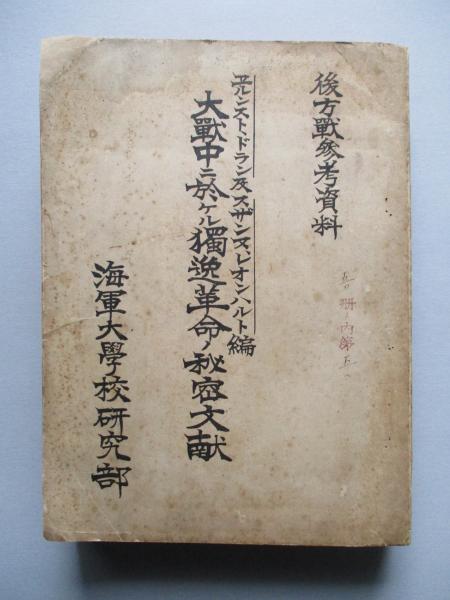 後方戰參考資料
冊ノ内第五
エルンスト、ドラン及スザンヌ、レオンハルト編
大戰中ニ於ケル獨逸革命ノ秘密文献
海軍大學校研究部